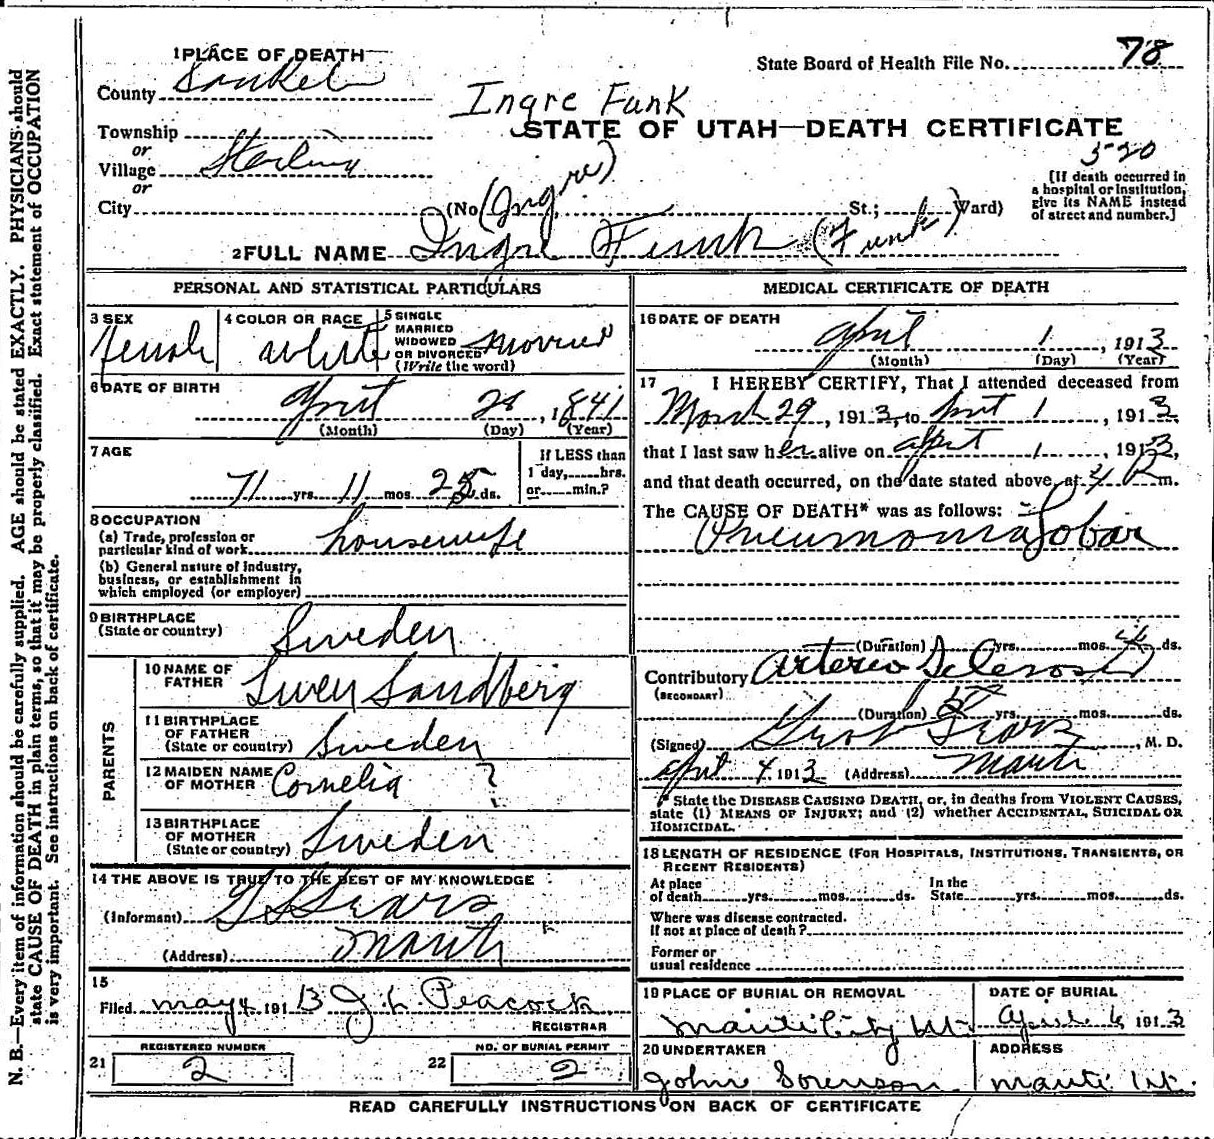 1 PLACE OF DEATH
State Board of Health File No. 78
County Sanpete
Ingre Funk
STATE OF UTAH—DEATH CERTIFICATE
Township
or
Village Sterling
or
City
(No. St.; Ward)
(Ingre)
520
[If death occurred in
a hospital or institution,
give its NAME instead
of street and number.]
2 FULL NAME Ingre Funk (Funk)
PERSONAL AND STATISTICAL PARTICULARS
3 SEX
female
4 COLOR OR RACE
white
5 SINGLE
MARRIED
WIDOWED
OR DIVORCED
(Write the word)
Married
6 DATE OF BIRTH
April 28, 1841
(Month) (Day) (Year)
7 AGE
71 yrs. 11 mos. 25 ds.
If LESS than
1 day, hrs.
or min.?
8 OCCUPATION
(a) Trade, profession or
particular kind of work housewife
(b) General nature of industry,
business, or establishment in
which employed (or employer)
9 BIRTHPLACE
(State or country) Sweden
PARENTS
10 NAME OF
FATHER Swen Sandberg
11 BIRTHPLACE
OF FATHER
(State or country) Sweden
12 MAIDEN NAME
OF MOTHER Cornelia ?
13 BIRTHPLACE
OF MOTHER
(State or country) Sweden
14 THE ABOVE IS TRUE TO THE BEST OF MY KNOWLEDGE
(Informant) Sears
(Address) Manti
15
Filed May 4 1913 J. L. Peacock
REGISTRAR
REGISTERED NUMBER
21 2
NO. OF BURIAL PERMIT
22 2
MEDICAL CERTIFICATE OF DEATH
16 DATE OF DEATH
April 1, 1913
(Month) (Day) (Year)
17 I HEREBY CERTIFY, That I attended deceased from
March 29, 1913, to April 1, 1913
that I last saw her alive on April 1, 1913,
and that death occurred, on the date stated above, at 4 P m.
The CAUSE OF DEATH* was as follows:
Pneumonia Lobar
(Duration) yrs. mos. 4 ds.
Contributory Arterio Sclerosis
(SECONDARY)
(Duration) yrs. mos. ds.
(Signed) Sears, M. D.
April 4, 1913 (Address) Manti
* State the DISEASE CAUSING DEATH, or, in deaths from VIOLENT CAUSES,
state (1) MEANS OF INJURY; and (2) whether ACCIDENTAL, SUICIDAL OR
HOMICIDAL.
18 LENGTH OF RESIDENCE (FOR HOSPITALS, INSTITUTIONS, TRANSIENTS, OR
RECENT RESIDENTS)
At place
of death yrs. mos. ds.
In the
State yrs. mos. ds.
Where was disease contracted.
If not at place of death?
Former or
usual residence
19 PLACE OF BURIAL OR REMOVAL
Manti City Ut.
DATE OF BURIAL
April 6, 1913
20 UNDERTAKER
John Sorenson
ADDRESS
Manti Ut.
READ CAREFULLY INSTRUCTIONS ON BACK OF CERTIFICATE
N. B.—Every item of information should be carefully supplied. AGE should be stated EXACTLY. PHYSICIANS should
state CAUSE OF DEATH in plain terms, so that it may be properly classified. Exact statement of OCCUPATION
is very important. See instructions on back of certificate.